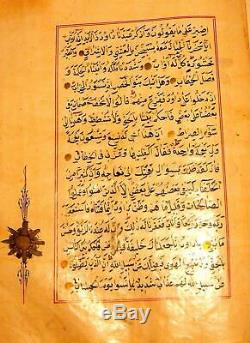 اِصْبِرْ عَلٰى مَا يَقُولُونَ وَاذْكُرْ عَبْدَنَا دَاوُدَ ذَا الْاَيْدِ اِنَّهُ اَوَّابٌ
اِنَّا سَخَّرْنَا الْجِبَالَ مَعَهُ يُسَبِّحْنَ بِالْعَشِيِّ وَالْاِشْرَاقِ وَالطَّيْرَ
مَحْشُورَةً كُلٌّ لَهُ اَوَّابٌ وَشَدَدْنَا مُلْكَهُ وَاٰتَيْنَاهُ الْحِكْمَةَ وَ
فَصْلَ الْخِطَابِ وَهَلْ اَتٰيكَ نَبَؤُا الْخَصْمِ اِذْ تَسَوَّرُوا الْمِحْرَابَ
اِذْ دَخَلُوا عَلٰى دَاوُدَ فَفَزِعَ مِنْهُمْ قَالُوا لَا تَخَفْ خَصْمَانِ بَغٰى
بَعْضُنَا عَلٰى بَعْضٍ فَاحْكُمْ بَيْنَنَا بِالْحَقِّ وَلَا تُشْطِطْ وَاهْدِنَا اِلٰى
سَوَاءِ الصِّرَاطِ اِنَّ هٰذَا اَخِي لَهُ تِسْعٌ وَتِسْعُونَ نَعْجَةً
وَلِيَ نَعْجَةٌ وَاحِدَةٌ فَقَالَ اَكْفِلْنِيهَا وَعَزَّنِي فِي الْخِطَابِ
قَالَ لَقَدْ ظَلَمَكَ بِسُؤَالِ نَعْجَتِكَ اِلٰى نِعَاجِهِ وَاِنَّ كَثِيرًا مِنَ
الْخُلَطَاءِ لَيَبْغِي بَعْضُهُمْ عَلٰى بَعْضٍ اِلَّا الَّذِينَ اٰمَنُوا وَعَمِلُوا
الصَّالِحَاتِ وَقَلِيلٌ مَا هُمْ وَظَنَّ دَاوُدُ اَنَّمَا فَتَنَّاهُ فَاسْتَغْفَرَ
رَبَّهُ وَخَرَّ رَاكِعًا وَاَنَابَ فَغَفَرْنَا لَهُ ذٰلِكَ وَاِنَّ لَهُ عِنْدَنَا لَزُلْفٰى
وَحُسْنَ مَاٰبٍ يَا دَاوُدُ اِنَّا جَعَلْنَاكَ خَلِيفَةً فِي الْاَرْضِ فَاحْكُمْ بَيْنَ النَّاسِ بِالْحَقِّ
وَلَا تَتَّبِعِ الْهَوٰى فَيُضِلَّكَ عَنْ سَبِيلِ اللّٰهِ اِنَّ الَّذِينَ يَضِلُّونَ
عَنْ سَبِيلِ اللّٰهِ لَهُمْ عَذَابٌ شَدِيدٌ بِمَا نَسُوا يَوْمَ الْحِسَابِ